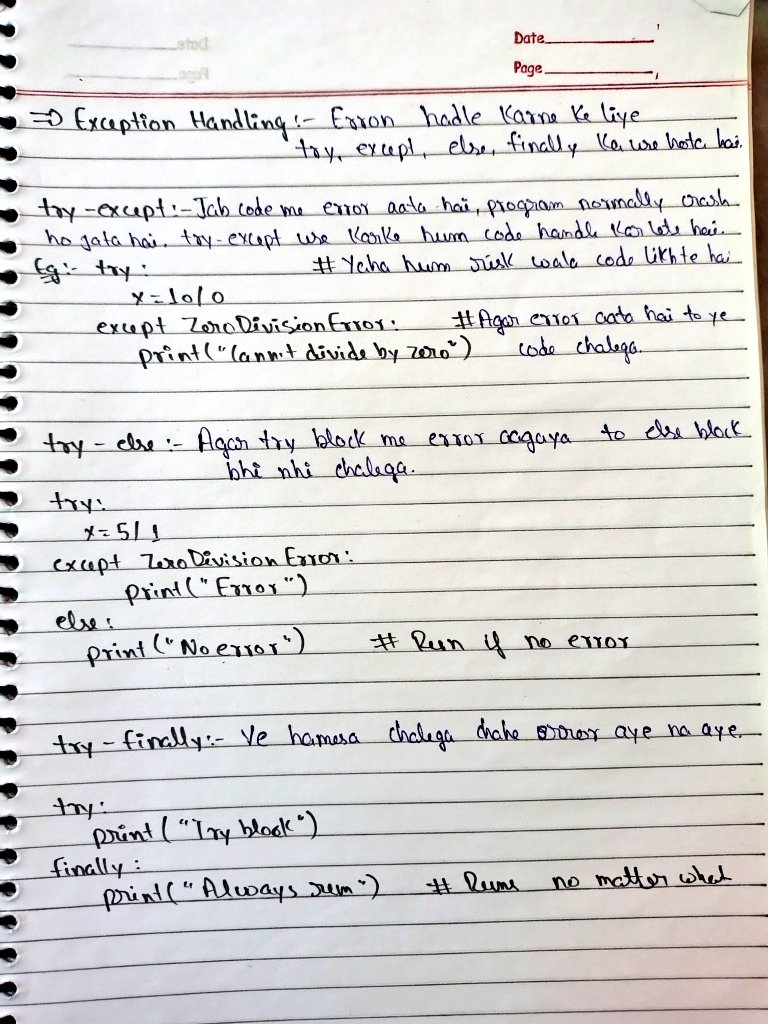 Date
Page
⇒ Exception Handling :- Error hadle Karne Ke liye
try, except, else, finally Ka use hota hai.
try - except :- Jab code me error aata hai, program normally crash
ho jata hai. try-except use Karke hum code handle Kar lete hai.
Eg :- try : # Yaha hum risk wala code likhte hai
x = 10/0
except ZeroDivisionError : # Agar error aata hai to ye
print("Cannot divide by zero") code chalega.
try - else :- Agar try block me error aagaya to else block
bhi nhi chalega.
try :
x = 5/1
except ZeroDivisionError :
print("Error")
else :
print("No error") # Run if no error
try - finally :- Ye hamesa chalega chahe error aye na aye.
try :
print("Try block")
finally :
print("Always run") # Runs no matter what